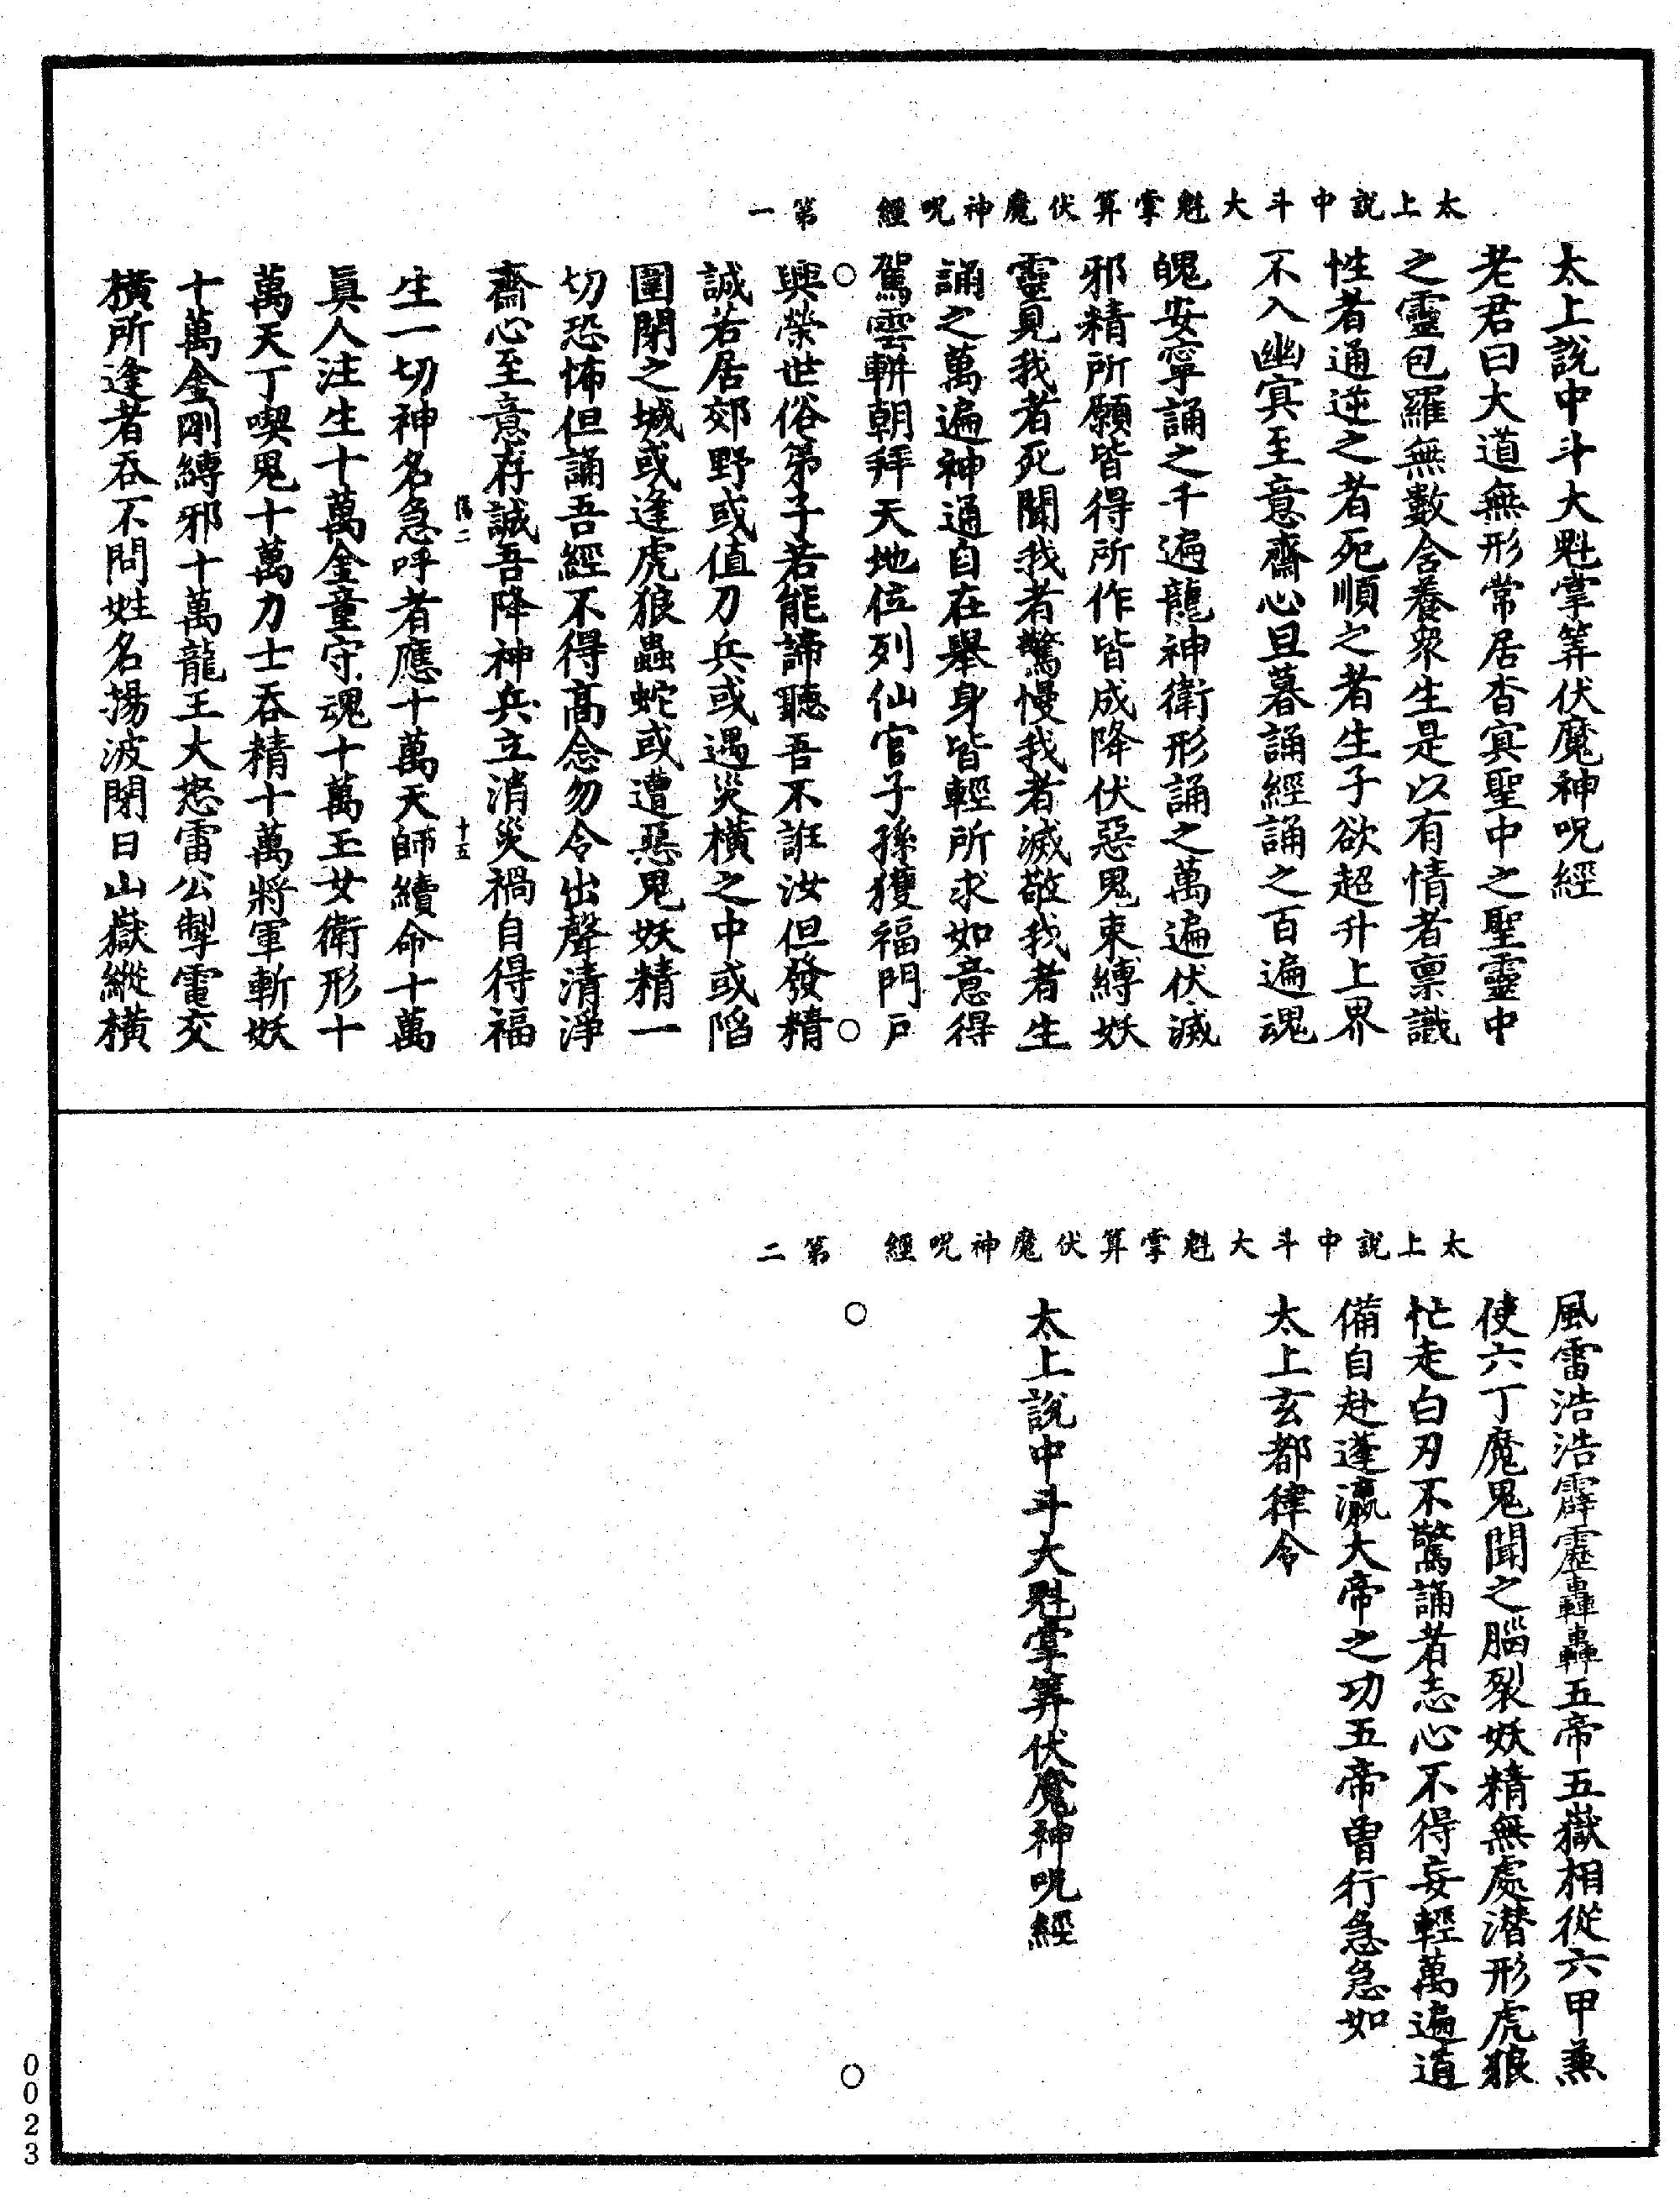 太上說中斗大魁掌算伏魔神呪經　第一
太上說中斗大魁掌筭伏魔神呪經
老君曰大道無形常居杳冥聖中之聖靈中
之靈包羅無數含養眾生是以有情者稟識
性者通逆之者死順之者生子欲超升上界
不入幽冥至意齋心旦暮誦經誦之百遍魂
魄安寧誦之千遍龍神衛形誦之萬遍伏滅
邪精所願皆得所作皆成降伏惡鬼束縛妖
靈見我者死聞我者驚慢我者滅敬我者生
誦之萬遍神通自在舉身皆輕所求如意得
駕雲軿朝拜天地位列仙官子孫獲福門戶
興榮世俗弟子若能諦聽吾不誑汝但發精
誠若居郊野或值刀兵或遇災橫之中或陷
圍閉之城或逢虎狼蟲蛇或遭惡鬼妖精一
切恐怖但誦吾經不得高念勿令出聲清淨
齋心至意存誠吾降神兵立消災禍自得福
傷二　十五
生一切神名急呼者應十萬天師續命十萬
眞人注生十萬金童守魂十萬玉女衛形十
萬天丁喫鬼十萬力士吞精十萬將軍斬妖
十萬金剛縛邪十萬龍王大怒雷公掣電交
橫所逢者吞不問姓名揚波閉日山嶽縱橫
太上說中斗大魁掌算伏魔神呪經　第二
風雷浩浩霹靂轟轟五帝五嶽相從六甲兼
使六丁魔鬼聞之腦裂妖精無處潛形虎狼
忙走白刃不驚誦者志心不得妄輕萬遍道
備自赴蓬瀛大帝之功五帝曾行急急如
太上玄都律令
太上說中斗大魁掌筭伏魔神呪經
0023